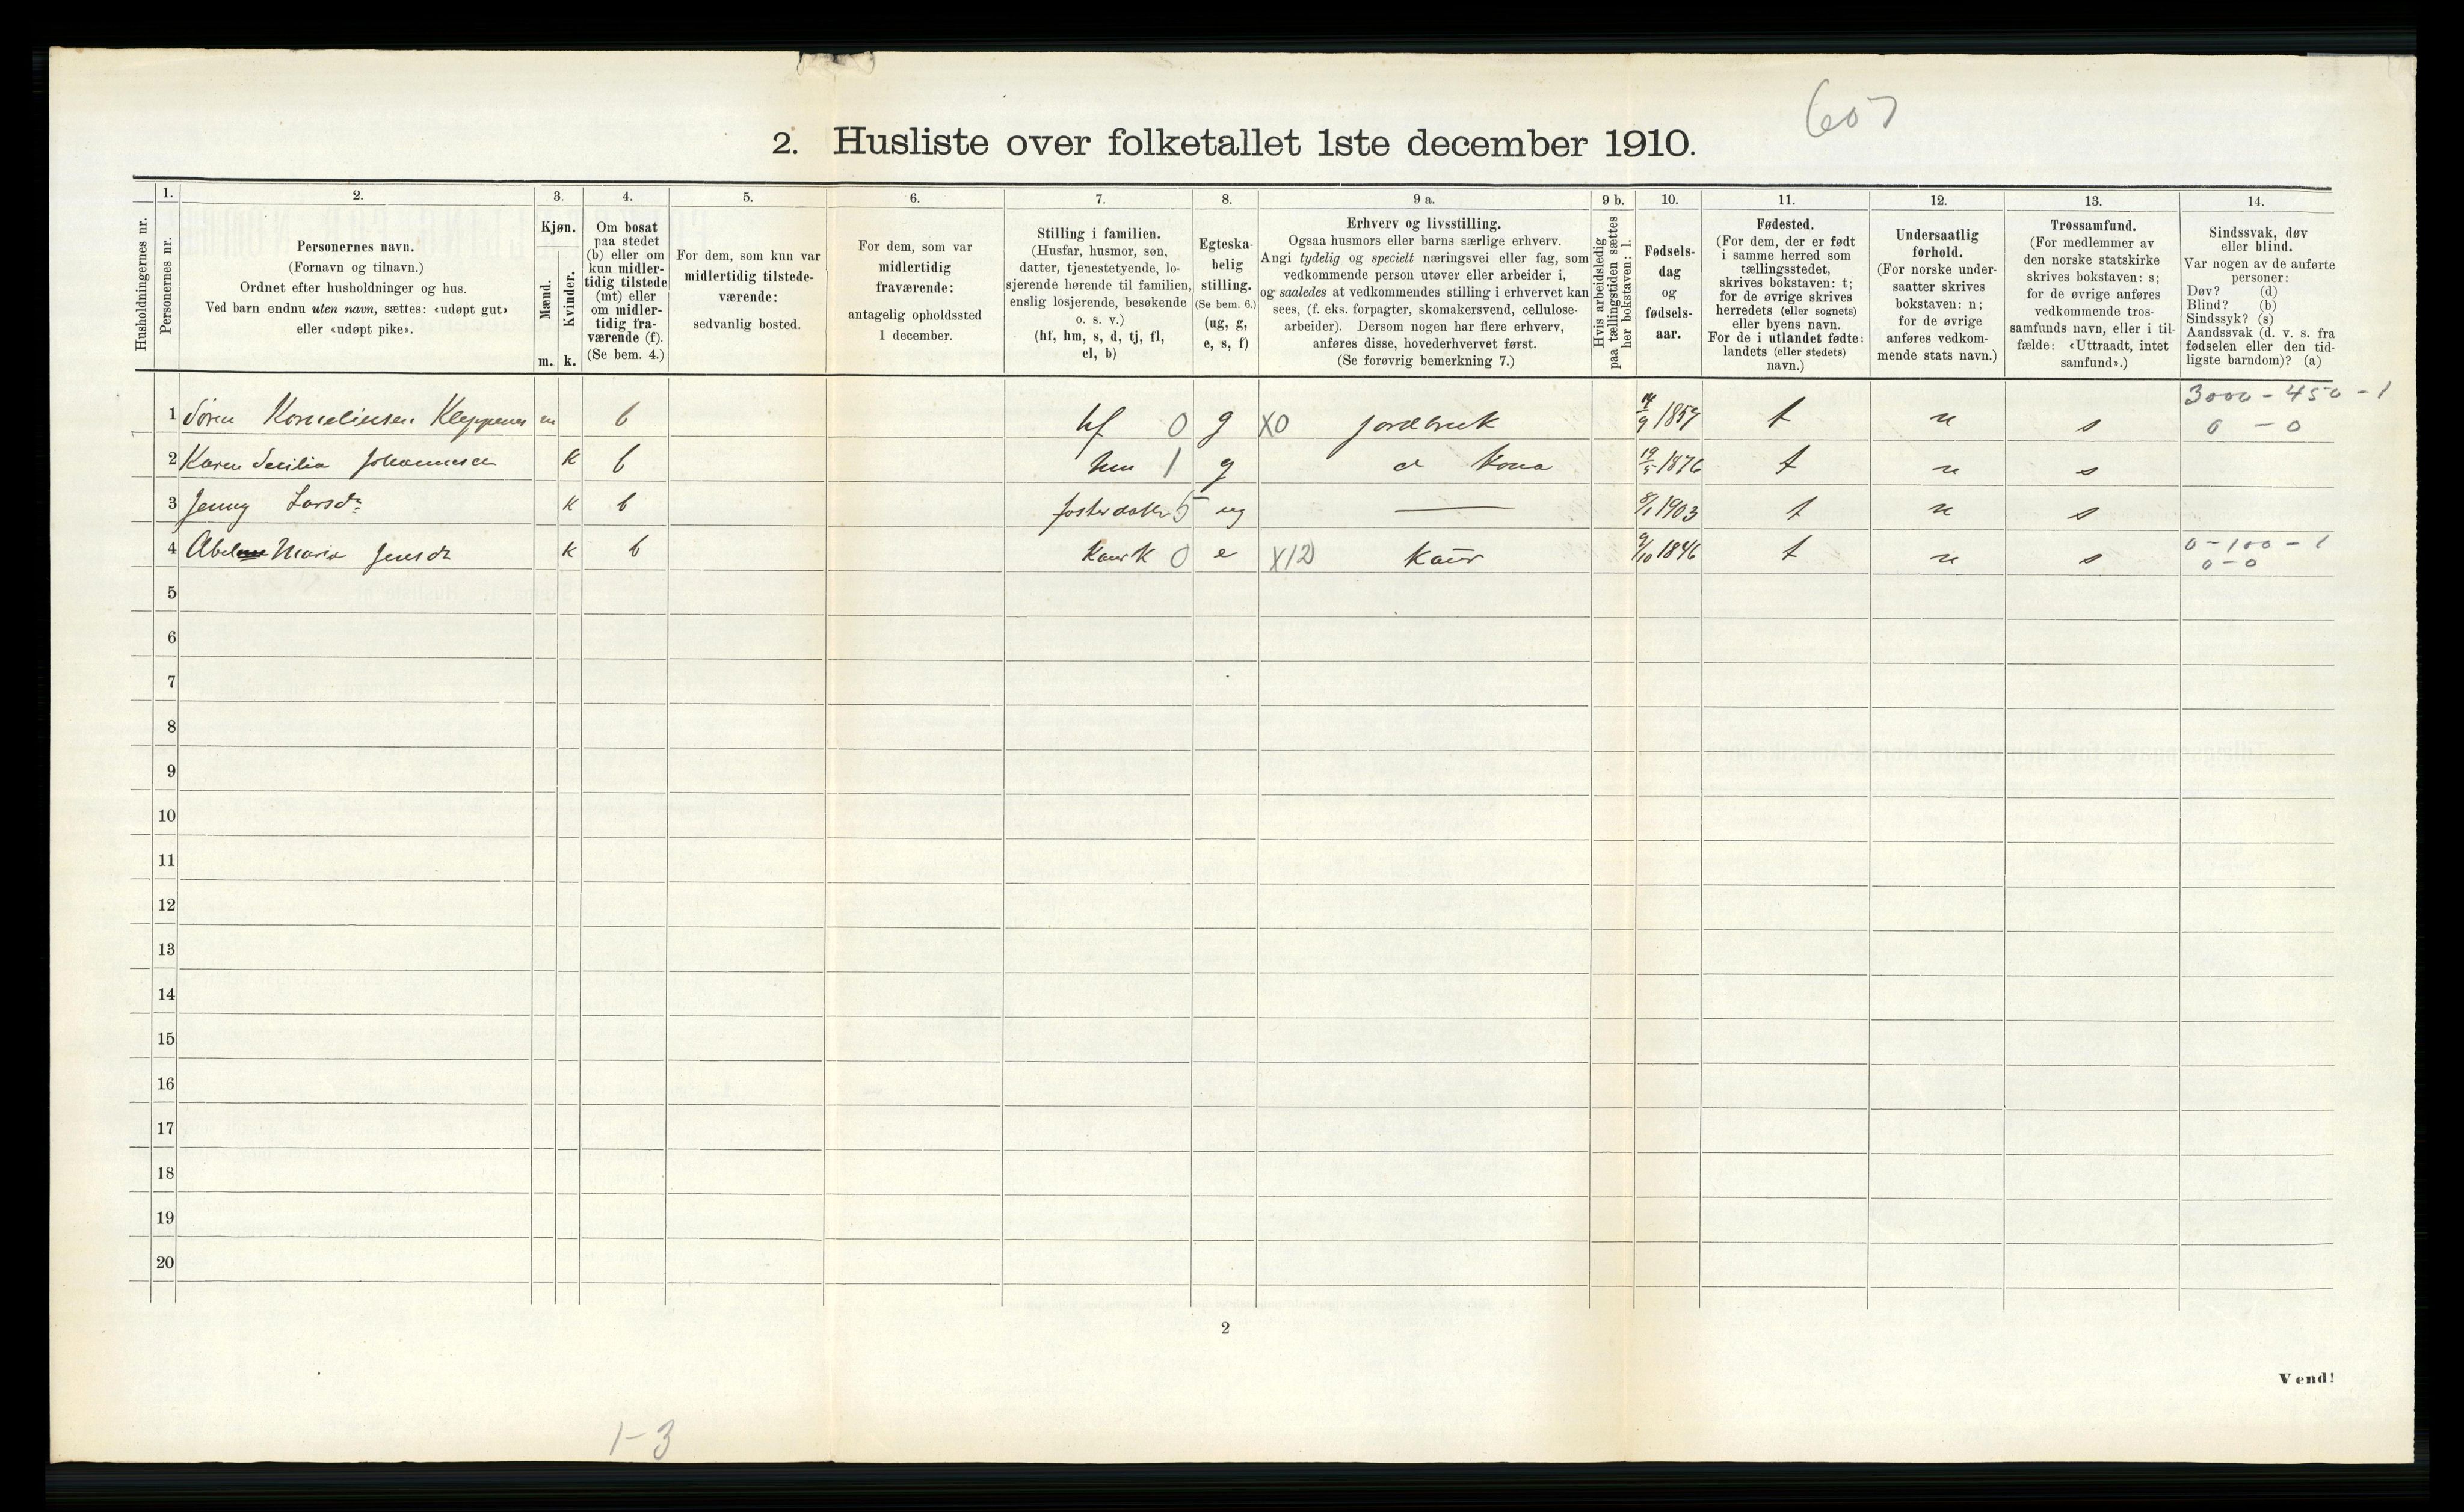 607
2. Husliste over folketallet 1ste december 1910.
Husholdningernes nr.
1.
Personernes nr.
2.
Personernes navn.
(Fornavn og tilnavn.)
Ordnet efter husholdninger og hus.
Ved barn endnu uten navn, sættes: «udøpt gut»
eller «udøpt pike».
3.
Kjøn.
Mænd.
Kvinder.
m. k.
4.
Om bosat
paa stedet
(b) eller om
kun midler-
tidig tilstede
(mt) eller
om midler-
tidig fra-
værende (f).
(Se bem. 4.)
5.
For dem, som kun var
midlertidig tilstede-
værende:
sedvanlig bosted.
6.
For dem, som var
midlertidig
fraværende:
antagelig opholdssted
1 december.
7.
Stilling i familien.
(Husfar, husmor, søn,
datter, tjenestetyende, lo-
sjerende hørende til familien,
enslig losjerende, besøkende
o. s. v.)
(hf, hm, s, d, tj, fl,
el, b)
8.
Egteska-
belig
stilling.
(Se bem. 6.)
(ug, g,
e, s, f)
9 a.
Erhverv og livsstilling.
Ogsaa husmors eller barns særlige erhverv.
Angi tydelig og specielt næringsvei eller fag, som
vedkommende person utøver eller arbeider i,
og saaledes at vedkommendes stilling i erhvervet kan
sees, (f. eks. forpagter, skomakersvend, cellulose-
arbeider). Dersom nogen har flere erhverv,
anføres disse, hovederhvervet først.
(Se forøvrig bemerkning 7.)
9 b.
Hvis arbeidsledig
paa tællingstiden sættes
her bokstaven: l.
10.
Fødsels-
dag
og
fødsels-
aar.
11.
Fødested.
(For dem, der er født
i samme herred som
tællingsstedet,
skrives bokstaven: t;
for de øvrige skrives
herredets (eller sognets)
eller byens navn.
For de i utlandet fødte:
landets (eller stedets)
navn.)
12.
Undersaatlig
forhold.
(For norske under-
saatter skrives
bokstaven: n;
for de øvrige
anføres vedkom-
mende stats navn.)
13.
Trossamfund.
(For medlemmer av
den norske statskirke
skrives bokstaven: s;
for de øvrige anføres
vedkommende tros-
samfunds navn, eller i til-
fælde: «Uttraadt, intet
samfund».)
14.
Sindssvak, døv
eller blind.
Var nogen av de anførte
personer:
Døv? (d)
Blind? (b)
Sindssyk? (s)
Aandssvak (d. v. s. fra
fødselen eller den tid-
ligste barndom)? (a)
3000 - 450 - 1
1 Søren Korneliusen Kleppenes m b hf 0 g X0 jordbruk 14/9 1857 t n s 0 - 0
2 Karen Secilia Johannesen k b hm 1 g d kona 19/5 1876 t n s
3 Jenny Larsdr k b fosterdatter 5 ug — 8/1 1903 t n s
4 Abel Maria Jensdr k b k 0 e X12 Kaar 9/10 1846 t n s 0 - 100 - 1
0 - 0
5
6
7
8
9
10
11
12
13
14
15
16
17
18
19
20
2
Vend!
1-3